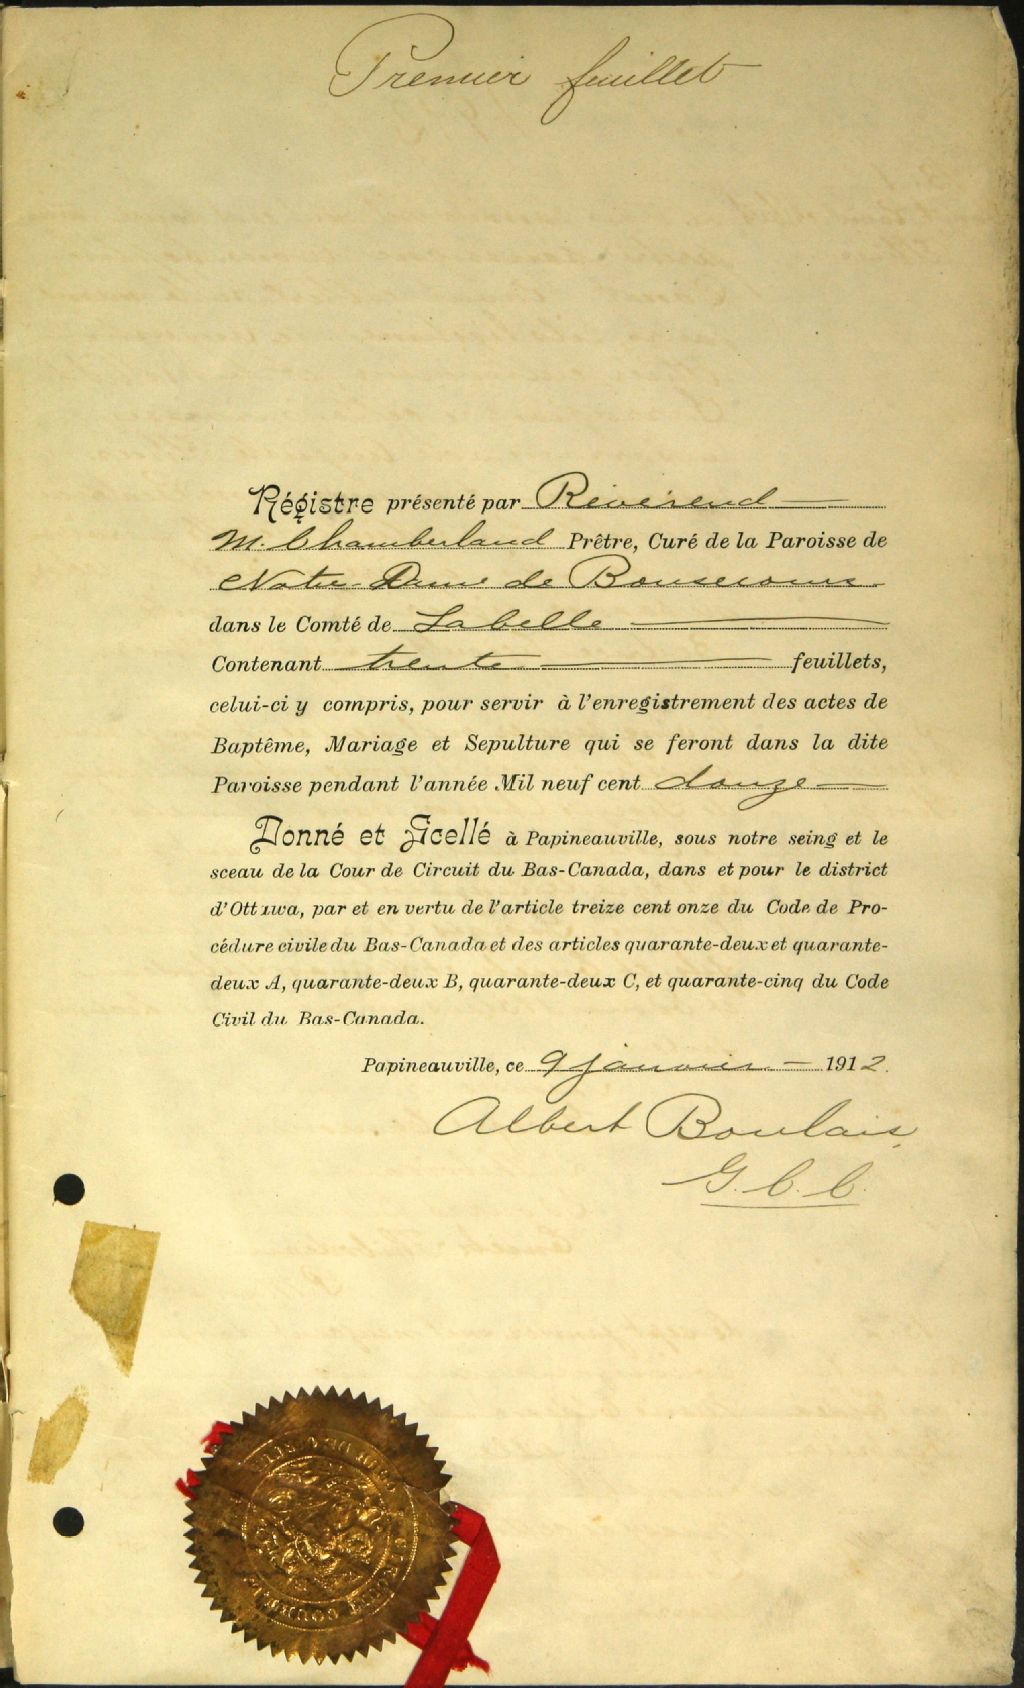 Premier feuillet
Régistre présenté par Révérend
M. Chamberland Prêtre, Curé de la Paroisse de
Notre Dame de Bonsecours
dans le Comté de Labelle
Contenant trente feuillets,
celui-ci y compris, pour servir à l'enregistrement des actes de
Baptême, Mariage et Sepulture qui se feront dans la dite
Paroisse pendant l'année Mil neuf cent douze
Donné et Scellé à Papineauville, sous notre seing et le
sceau de la Cour de Circuit du Bas-Canada, dans et pour le district
d'Ottawa, par et en vertu de l'article treize cent onze du Code de Pro-
cédure civile du Bas-Canada et des articles quarante-deux et quarante-
deux A, quarante-deux B, quarante-deux C, et quarante-cinq du Code
Civil du Bas-Canada.
Papineauville, ce 9 janvier 1912.
Albert Boulais
G. C. C.